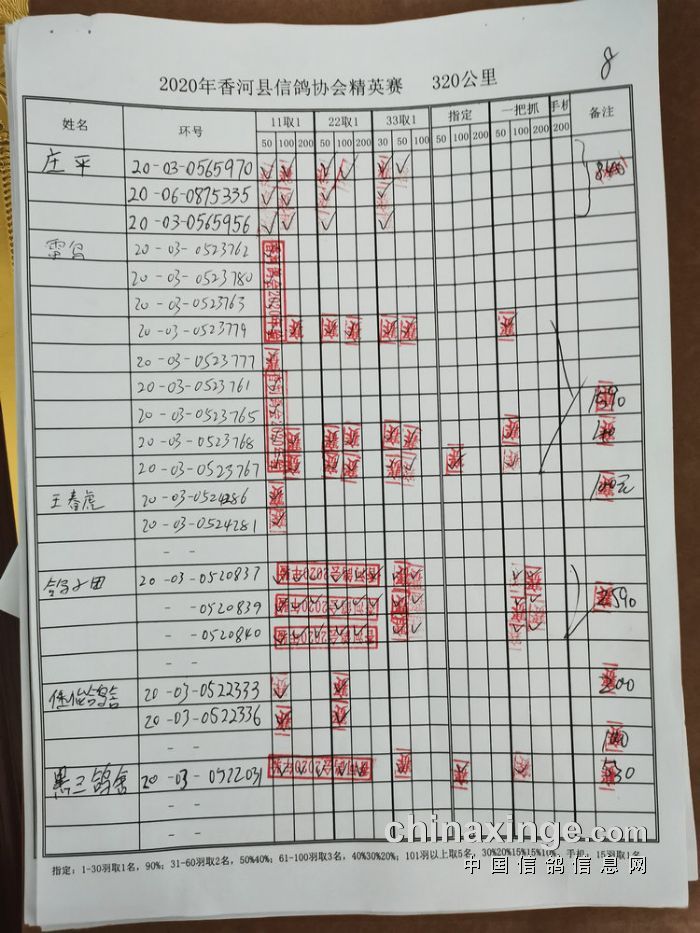 8
2020年香河县信鸽协会精英赛 320公里
姓名 环号 11取1 22取1 33取1 指定 一把抓 手机 备注
50 100 200 50 100 200 30 50 100 50 100 200 50 100 200 200
庄平 20-03-0565970
20-06-0875335
20-03-0565956
20-03-0523762
20-03-0523780
20-03-0523763
20-03-0523779
20-03-0523777
20-03-0523761
20-03-0523765
20-03-0523768
20-03-0523767
王春虎 20-03-0524286
20-03-0524281
- -
20-03-0520837
-0520839
-0520840
- -
20-03-0522333 200
20-03-0522336
- -
黑三鸽舍 20-03-0522031 530
- -
- -
指定:1-30羽取1名,90%;31-60羽取2名,50%40%;61-100羽取3名,40%30%20%;101羽以上取5名,30%20%15%15%10%;手机:15羽取1名
chinaxinge.com
中国信鸽信息网